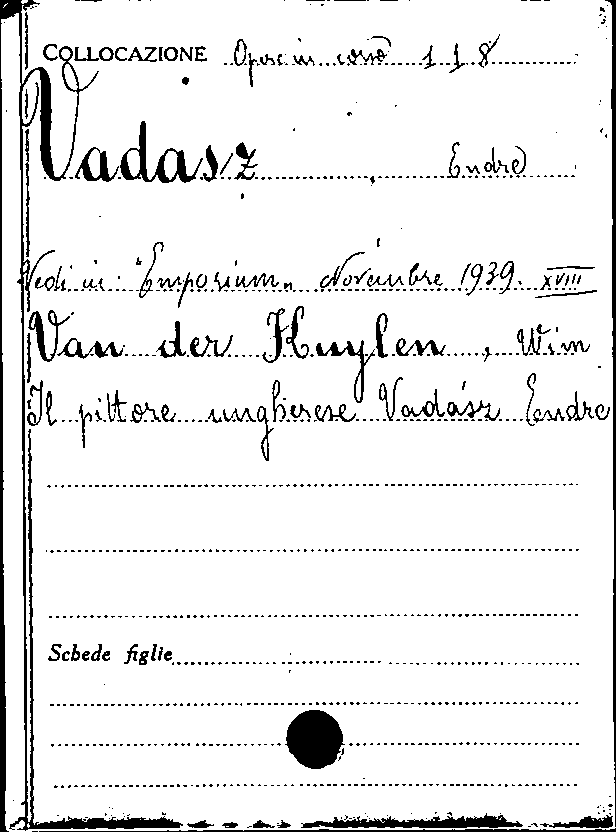 COLLOCAZIONE Opere in corso 118
Vadasz, Endre
Vedi in: "Emporium" Novembre 1939. XVIII
Van der Kuylen, Wim
Il pittore ungherese Vadász Endre
Schede figlie